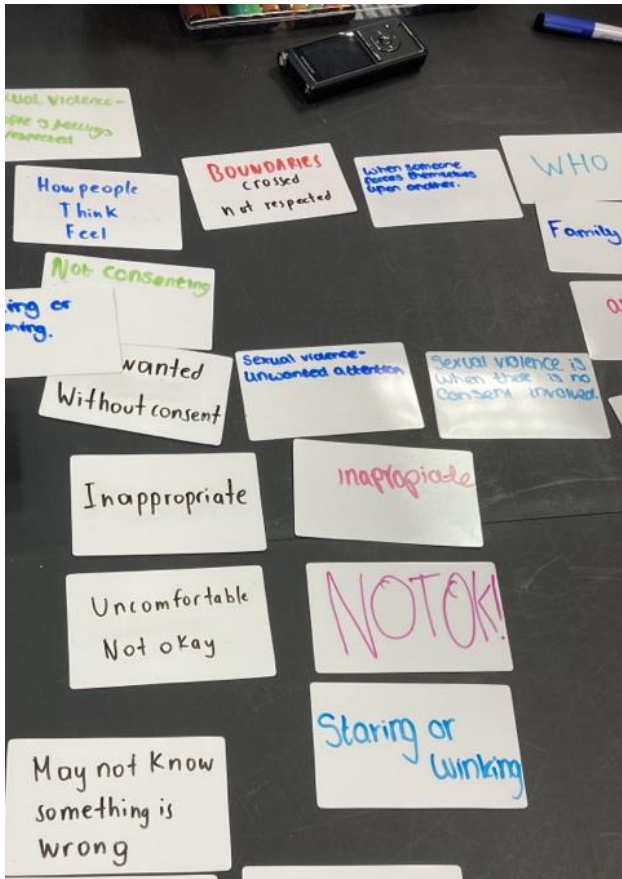 Violence-
feelings
respected
How people
Think
Feel
BOUNDARIES
crossed
not respected
When someone
forces themselves
upon another.
WHO
Family
Not consenting
ing or
wanted
Without consent
Sexual violence-
unwanted attention
Sexual violence is
when there is no
consent involved.
Inappropriate
inapropiate
Uncomfortable
Not okay
NOT OK!
Staring or
winking
May not know
something is
wrong